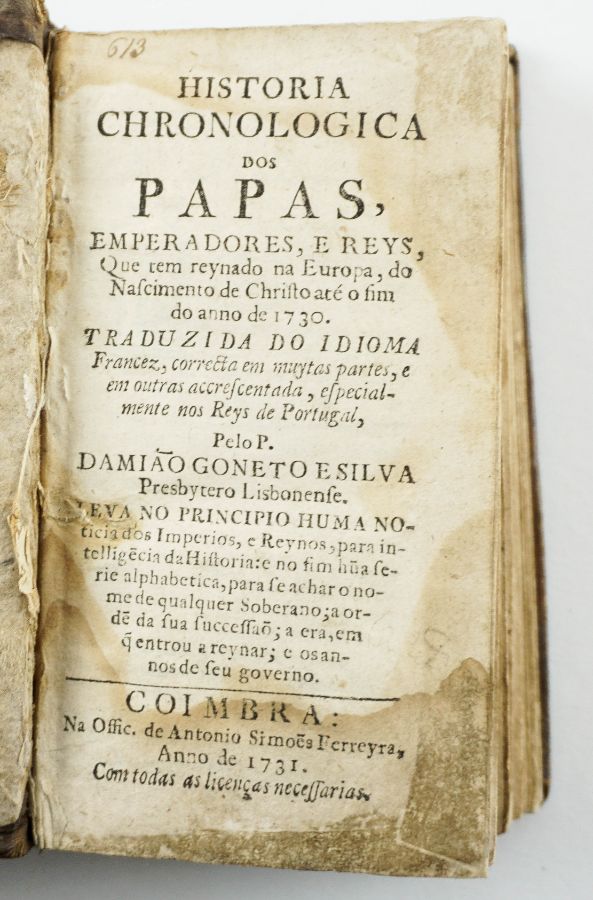 613
HISTORIA
CHRONOLOGICA
DOS
PAPAS,
EMPERADORES, E REYS,
Que tem reynado na Europa, do
Naſcimento de Chriſto até o fim
do anno de 1730.
TRADUZIDA DO IDIOMA
Francez, correcta em muytas partes, e
em outras accreſcentada, eſpecial-
mente nos Reys de Portugal,
Pelo P.
DAMIAÕ GONETO E SILVA
Presbytero Lisbonenſe.
LEVA NO PRINCIPIO HUMA NO-
ticia dos Imperios, e Reynos, para in-
telligẽcia da Hiſtoria: e no fim hũa ſe-
rie alphabetica, para ſe achar o no-
me de qualquer Soberano; a or-
dẽ da ſua ſucceſſaõ; a era, em
q̃ entrou a reynar; e os an-
nos de ſeu governo.
COIMBRA:
Na Offic. de Antonio Simoẽs Ferreyra,
Anno de 1731.
Com todas as licenças neceſſarias.